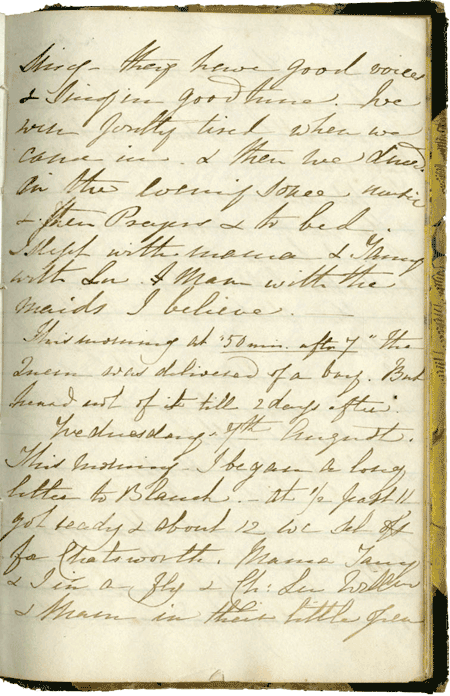 sing - they have good voices
& sing in good tune. We
were jointly tired when we
came in. & then we dined.
In the evening some music
& then Prayers & to bed.
I slept with mama & Fanny
with Lu. & Mam with the
maids I believe.
This morning at "50 min. after 7" the
Queen was delivered of a boy. But
heard not of it till 2 days after.
Wednesday. 7th August.
This morning I began a long
letter to Blanch. - at 1/2 past 11
got ready & about 12 we set off
for Chatsworth. Mama Fany
& I in a fly & Ch: Lu
& Mam in their little open